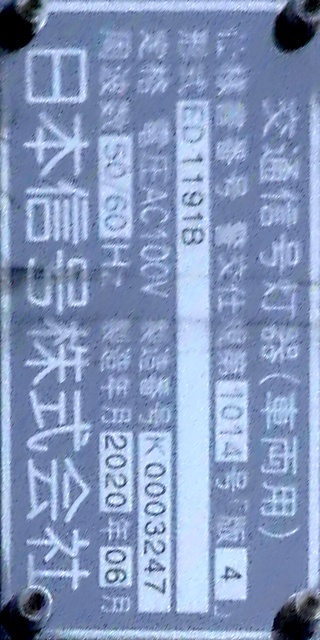 交通信号灯器(車両用)
仕様書番号 警交仕規第1014号「版4」
形式 ED1191B
定格 電圧AC100V 製造番号 K0003247
周波数50/60Hz 製造年月2020年06月
日本信号株式会社